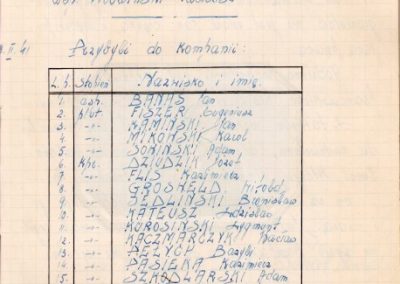 Przybyli do Kompanii:
L.p. Stopień Nazwisko i imię
1. asp. BANAŚ Jan
2. plut. FISZER Eugeniusz
3. -"- KAMIŃSKI Jan
4. -"- MIKOŃSKI Karol
5. -"- SOKIŃSKI Adam
6. Kpr. DZIUDZIK Józef
7. -"- FLIS Kazimierz
8. -"- GROSHELD Witold
9. -"- JEDLIŃSKI Bronisław
10. -"- KATEUSZ Zdzisław
11. -"- KOROSIŃSKI Zygmunt
12. -"- KACZMARCZYK Wacław
13. -"- PEŁYCH Bazyli
14. -"- PASIEKA Kazimierz
15. -"- SZKODLARSKI Adam